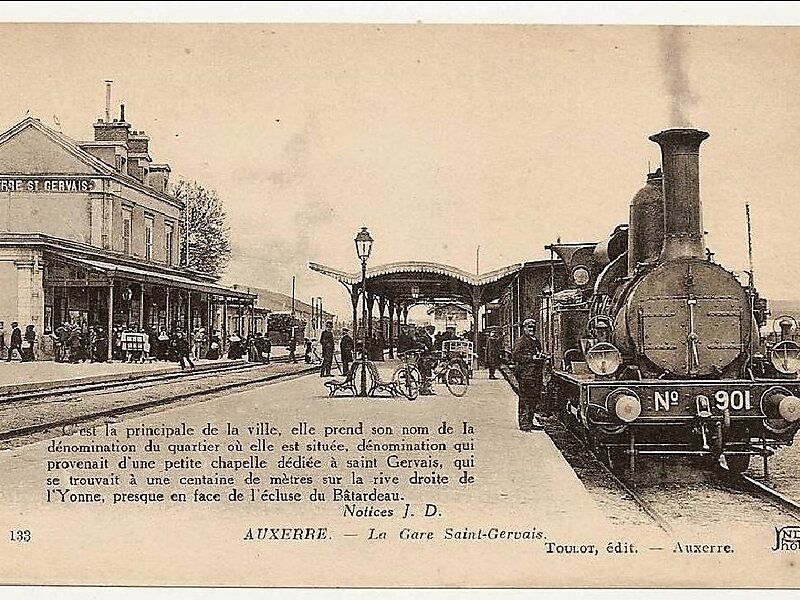 RRE ST GERVAIS
Nº 901
C'est la principale de la ville, elle prend son nom de la
dénomination du quartier où elle est située, dénomination qui
provenait d'une petite chapelle dédiée à saint Gervais, qui
se trouvait à une centaine de mètres sur la rive droite de
l'Yonne, presque en face de l'écluse du Bâtardeau.
Notices J. D.
133
AUXERRE. — La Gare Saint-Gervais.
TOULOT, édit. — Auxerre.
ND
Phot